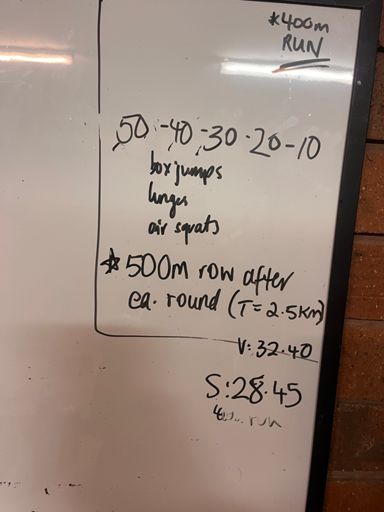 *400m
RUN
50-40-30-20-10
box jumps
lunges
air squats
*500m row after
ea. round (T=2.5km)
V:32.40
S:28.45
run